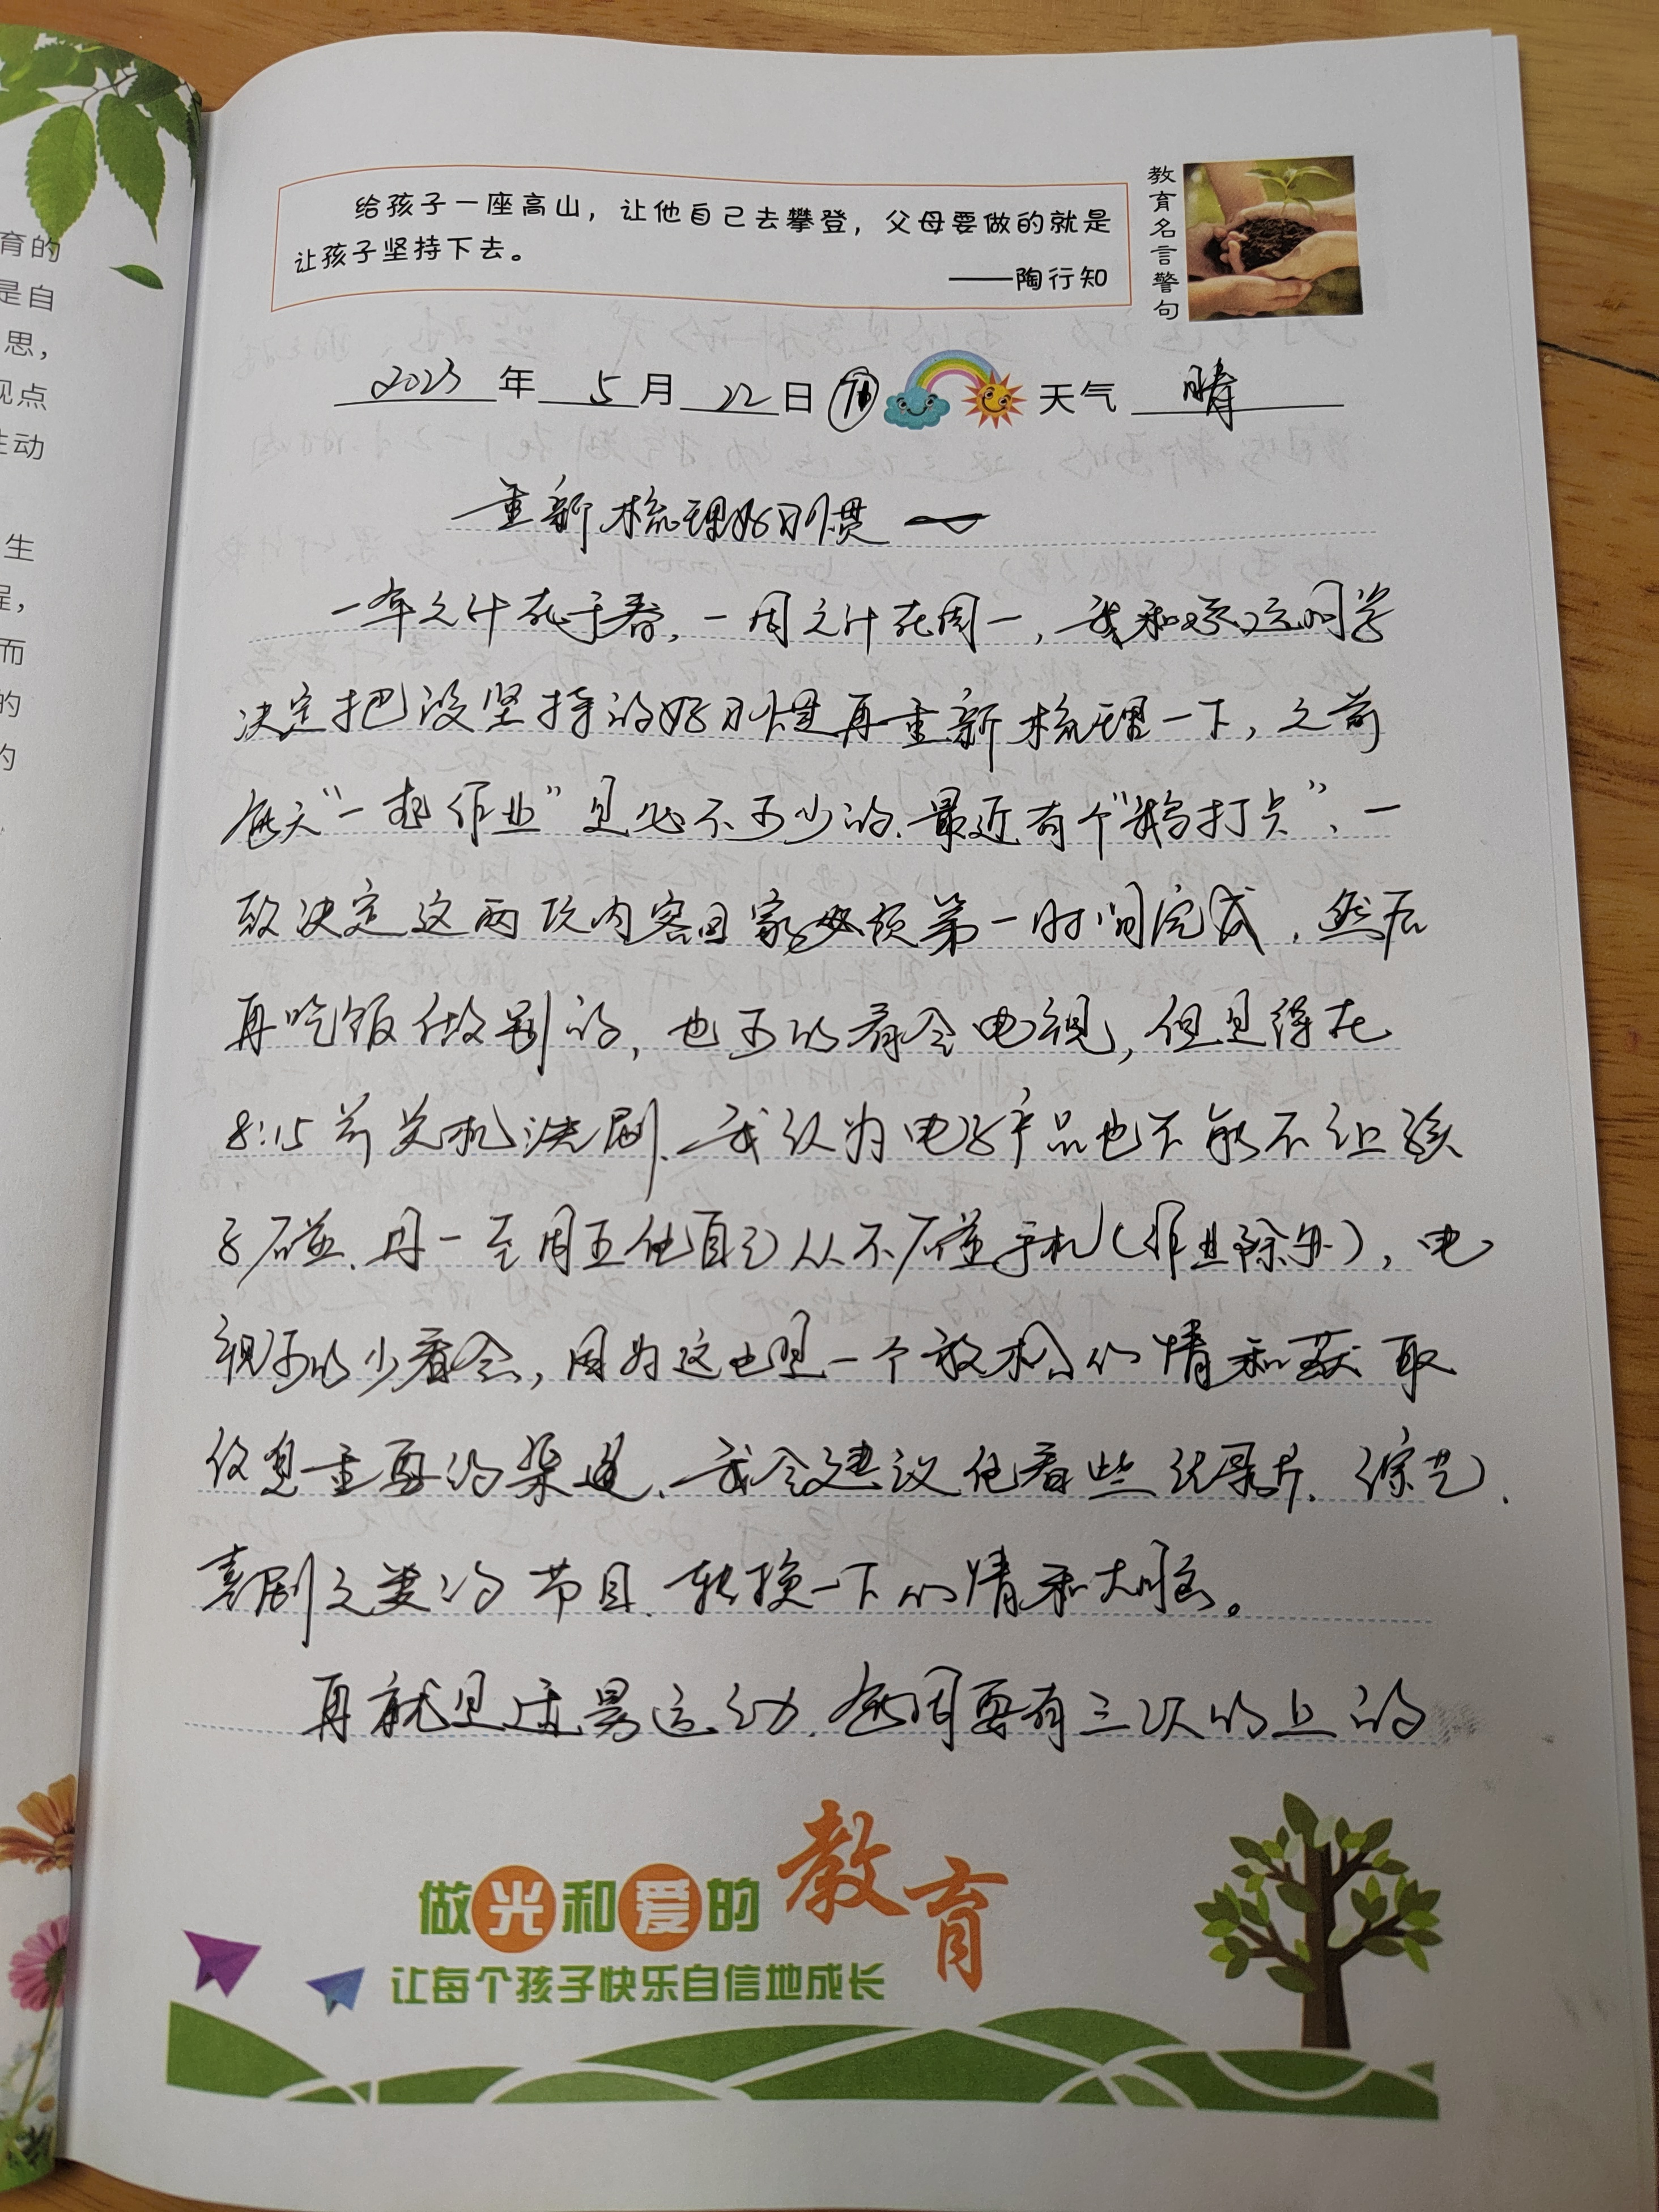 育的
是自
思,
观点
主动
生
程,
而
的
的
给孩子一座高山,让他自己去攀登,父母要做的就是
让孩子坚持下去。
——陶行知
教育名言警句
2023年5月22日 天气 晴
重新梳理好习惯
一年之计在于春,一周之计在周一,我和孩子同学
决定把没坚持的好习惯再重新梳理一下,之前
每天“一起作业”是必不可少的.最近有个“打点”,一
致决定这两项内容回家必须第一时间完成,然后
再吃饭做别的,也可以看会电视,但是得在
8:15前关机洗刷.我认为电子产品也不能不让孩
子碰.周一至周五他自己从不碰手机(作业除外),电
视可以少看会,因为这也是一个放松心情和获取
信息重要的渠道.我会建议他看些纪录片.综艺.
喜剧之类的节目.转换一下心情和大脑。
再就是体男运动.每周要有三次以上的
做光和爱的教育
让每个孩子快乐自信地成长